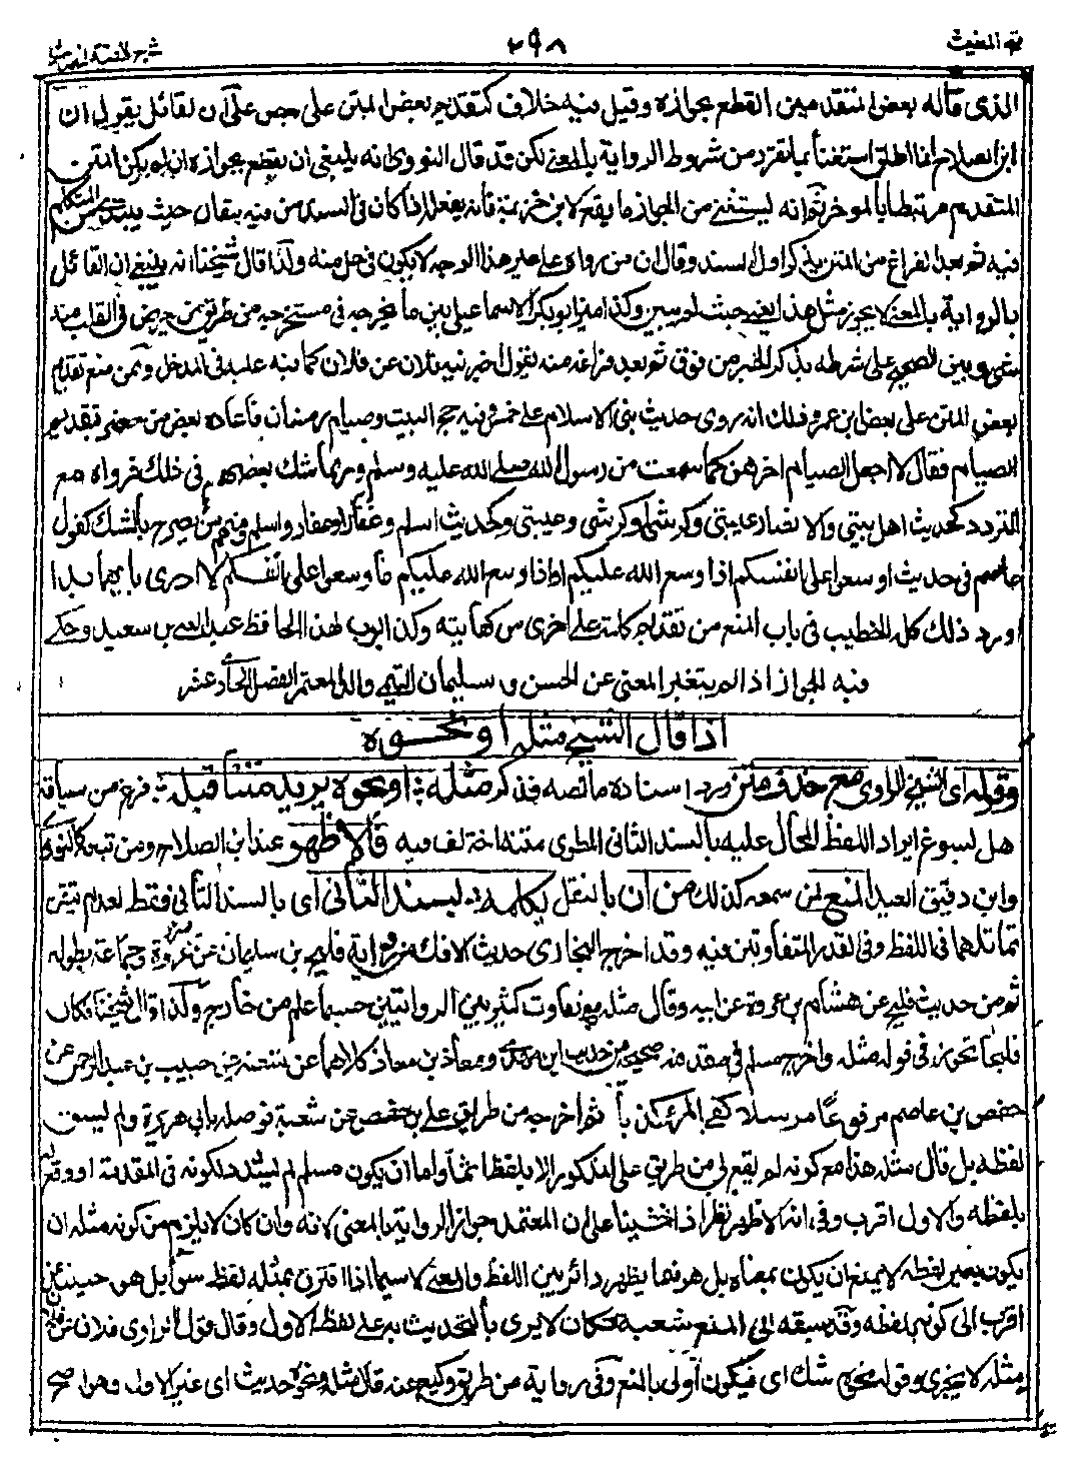 فتح المغيث
٢٩٨
شرح الفية الحديث
الذى قاله بعض المتقدمين القطع بجوازه وقيل فيه خلاف كتقديم بعض المتن على بعض على أن لقائل يقول ان
ابن الصلاح انما اطلق استغناء بما تقرر من شروط الرواية بالمعنى لكن قد قال النووى انه ينبغى ان يقطع بجوازه ان لم يكن المتن
المتقدم مرتبطا بالموخر ثم انه يستثنى من الجواز ما يقع لابن خزيمة فانه يفعله اذا كان فى السند من فيه مقال حيث يبتدى من المتكلم
فيه ثم بعد الفراغ من المتن يذكر اول السند وقال ان من رواه على غير هذا الوجه لا يكون فى حل منه ولذا قال شيخنا انه ينبغى ان القائل
بالرواية بالمعنى لا يجوز مثل هذا يعنى حيث لم يبين وكذا ميز ابو بكر الاسماعيلى بين ما يخرجه فى مستخرجه من طريق من يعرض فى القلب منه
شىء وبين الصحيح على شرطه بذكر الخبر من فوق ثم بعد فراغه منه يقول اخبرنيه فلان عن فلان كما نبه عليه فى المدخل وممن منع تقديم
بعض المتن على بعض ابن عمر وذلك انه روى حديث بنى الاسلام على خمس وفيه حج البيت وصيام رمضان فاعاده بعض من سمعه بتقديم
الصيام فقال لا اجعل الصيام اخرهن كما سمعت من رسول الله صلى الله عليه وسلم وربما شك بعضهم فى ذلك فرواه مع
التردد كحديث اهل بيتى والانصار عيبتى وكرشى او كرشى وعيبتى وكحديث اسلم وغفار او غفار واسلم ومنهم من يصرح بالشك كقول
عاصم فى حديث اوسعوا على انفسكم اذا وسع الله عليكم او اذا وسع الله عليكم فاوسعوا على انفسكم لا ادرى بايهما بدا
اورد ذلك كله الخطيب فى باب المنع من تقديم كلمة على اخرى من كفايته وكذا بوب لهذا الحافظ عبد الغنى بن سعيد وحكى
فيه الجواز اذا لم يتغير المعنى عن الحسن وسليمان التيمى والد المعتمر الفصل الحادى عشر
اذا قال الشيخ مثله او نحوه
وقوله اى الشيخ الراوى مع حذف متن ورد اسناده ما نصه فذكر مثله او نحوه يريد متنا قبل فرغ من سياقه
هل يسوغ ايراد اللفظ المحال عليه بالسند الثانى المطوى متنه اختلف فيه فالاظهر عند ابن الصلاح ومن تبعه كالنووى
وابن دقيق العيد المنع لمن سمعه كذلك من ان يكمله بالنقل بسند الثانى اى بالسند الثانى فقط لعدم تيقن
تماثلهما فى اللفظ وفى القدر المتفاوتين فيه وقد اخرج البخارى حديث الافك من رواية فليح بن سليمان عن عروة وجماعة بطوله
ثم من حديث فليح عن هشام بن عروة عن ابيه وقال مثله مع تفاوت كثير بين الروايتين حسبما علم من خارج وكذا قال شيخنا فكان
فليحا تجوز فى قوله مثله واخرج مسلم فى مقدمة صحيحه من حديث ابن مهدى ومعاذ بن معاذ كلاهما عن شعبة عن حبيب بن عبد الرحمن عن
حفص بن عاصم مرفوعا مرسلا كفى بالمرء كذبا ثم اخرجه من طريق على بن حفص عن شعبة فوصله بابى هريرة ولم يسق
لفظه بل قال مثله هذا مع كونه لم يقع لى من طريق على المذكور الا بلفظ اثما فاما ان يكون مسلم لم يشدد لكونه فى المقدمة او وقع له
بلفظه والاول اقرب وفى انه الاظهر نظر اذا مشينا على ان المعتمد جواز الرواية بالمعنى لانه وان كان لا يلزم من كونه مثله ان
يكون بعين لفظه لا يمنع ان يكون بمعناه بل هو فيما يظهر دائر بين اللفظ والمعنى لا سيما اذا اقترن بمثله لفظ سواء بل هو حينئذ
اقرب الى كونه بلفظه وقد سبقه الى المنع شعبة فكان لا يرى بالتحديث به على لفظ الاول وقال قول الراوى فلان عن فلان
مثله لا يجزى وقوله نحوه شك اى فيكون أولى بالمنع وفى رواية من طريق وكيع عنه قال مثله ونحوه حديث اى غير الاول وهو اصح